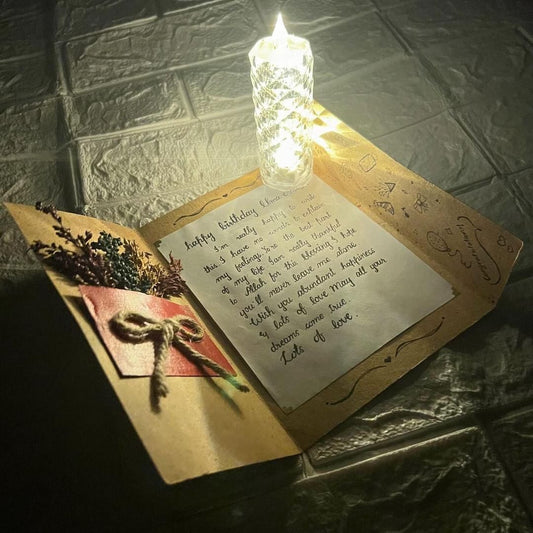 happy birthday
I'm really happy to write
this I have no words to explain
my feelings. You're the best part
of my life. I am really thankful
to Allah for this blessing. I hope
you'll never leave me alone
Wish you abundant happiness
& lots of love May all your
dreams come true.
Lots of love.